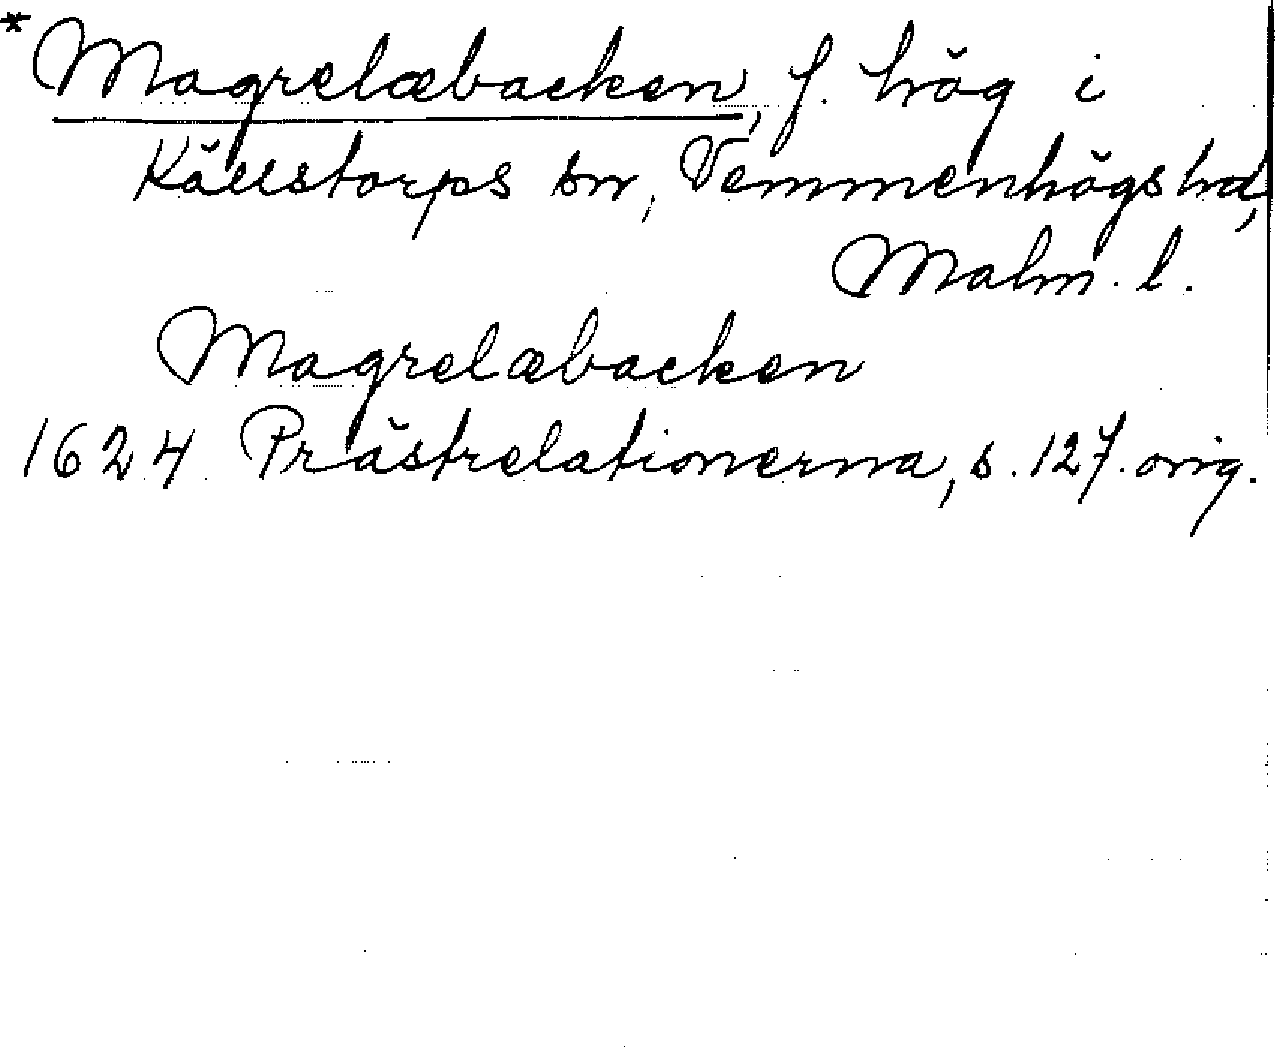 *Magrelæbacken, f. hög i
Källstorps sn, Vemmenhögs hd,
Malm. l.
Magrelæbacken
1624 Prästrelationerna, s. 127. orig.